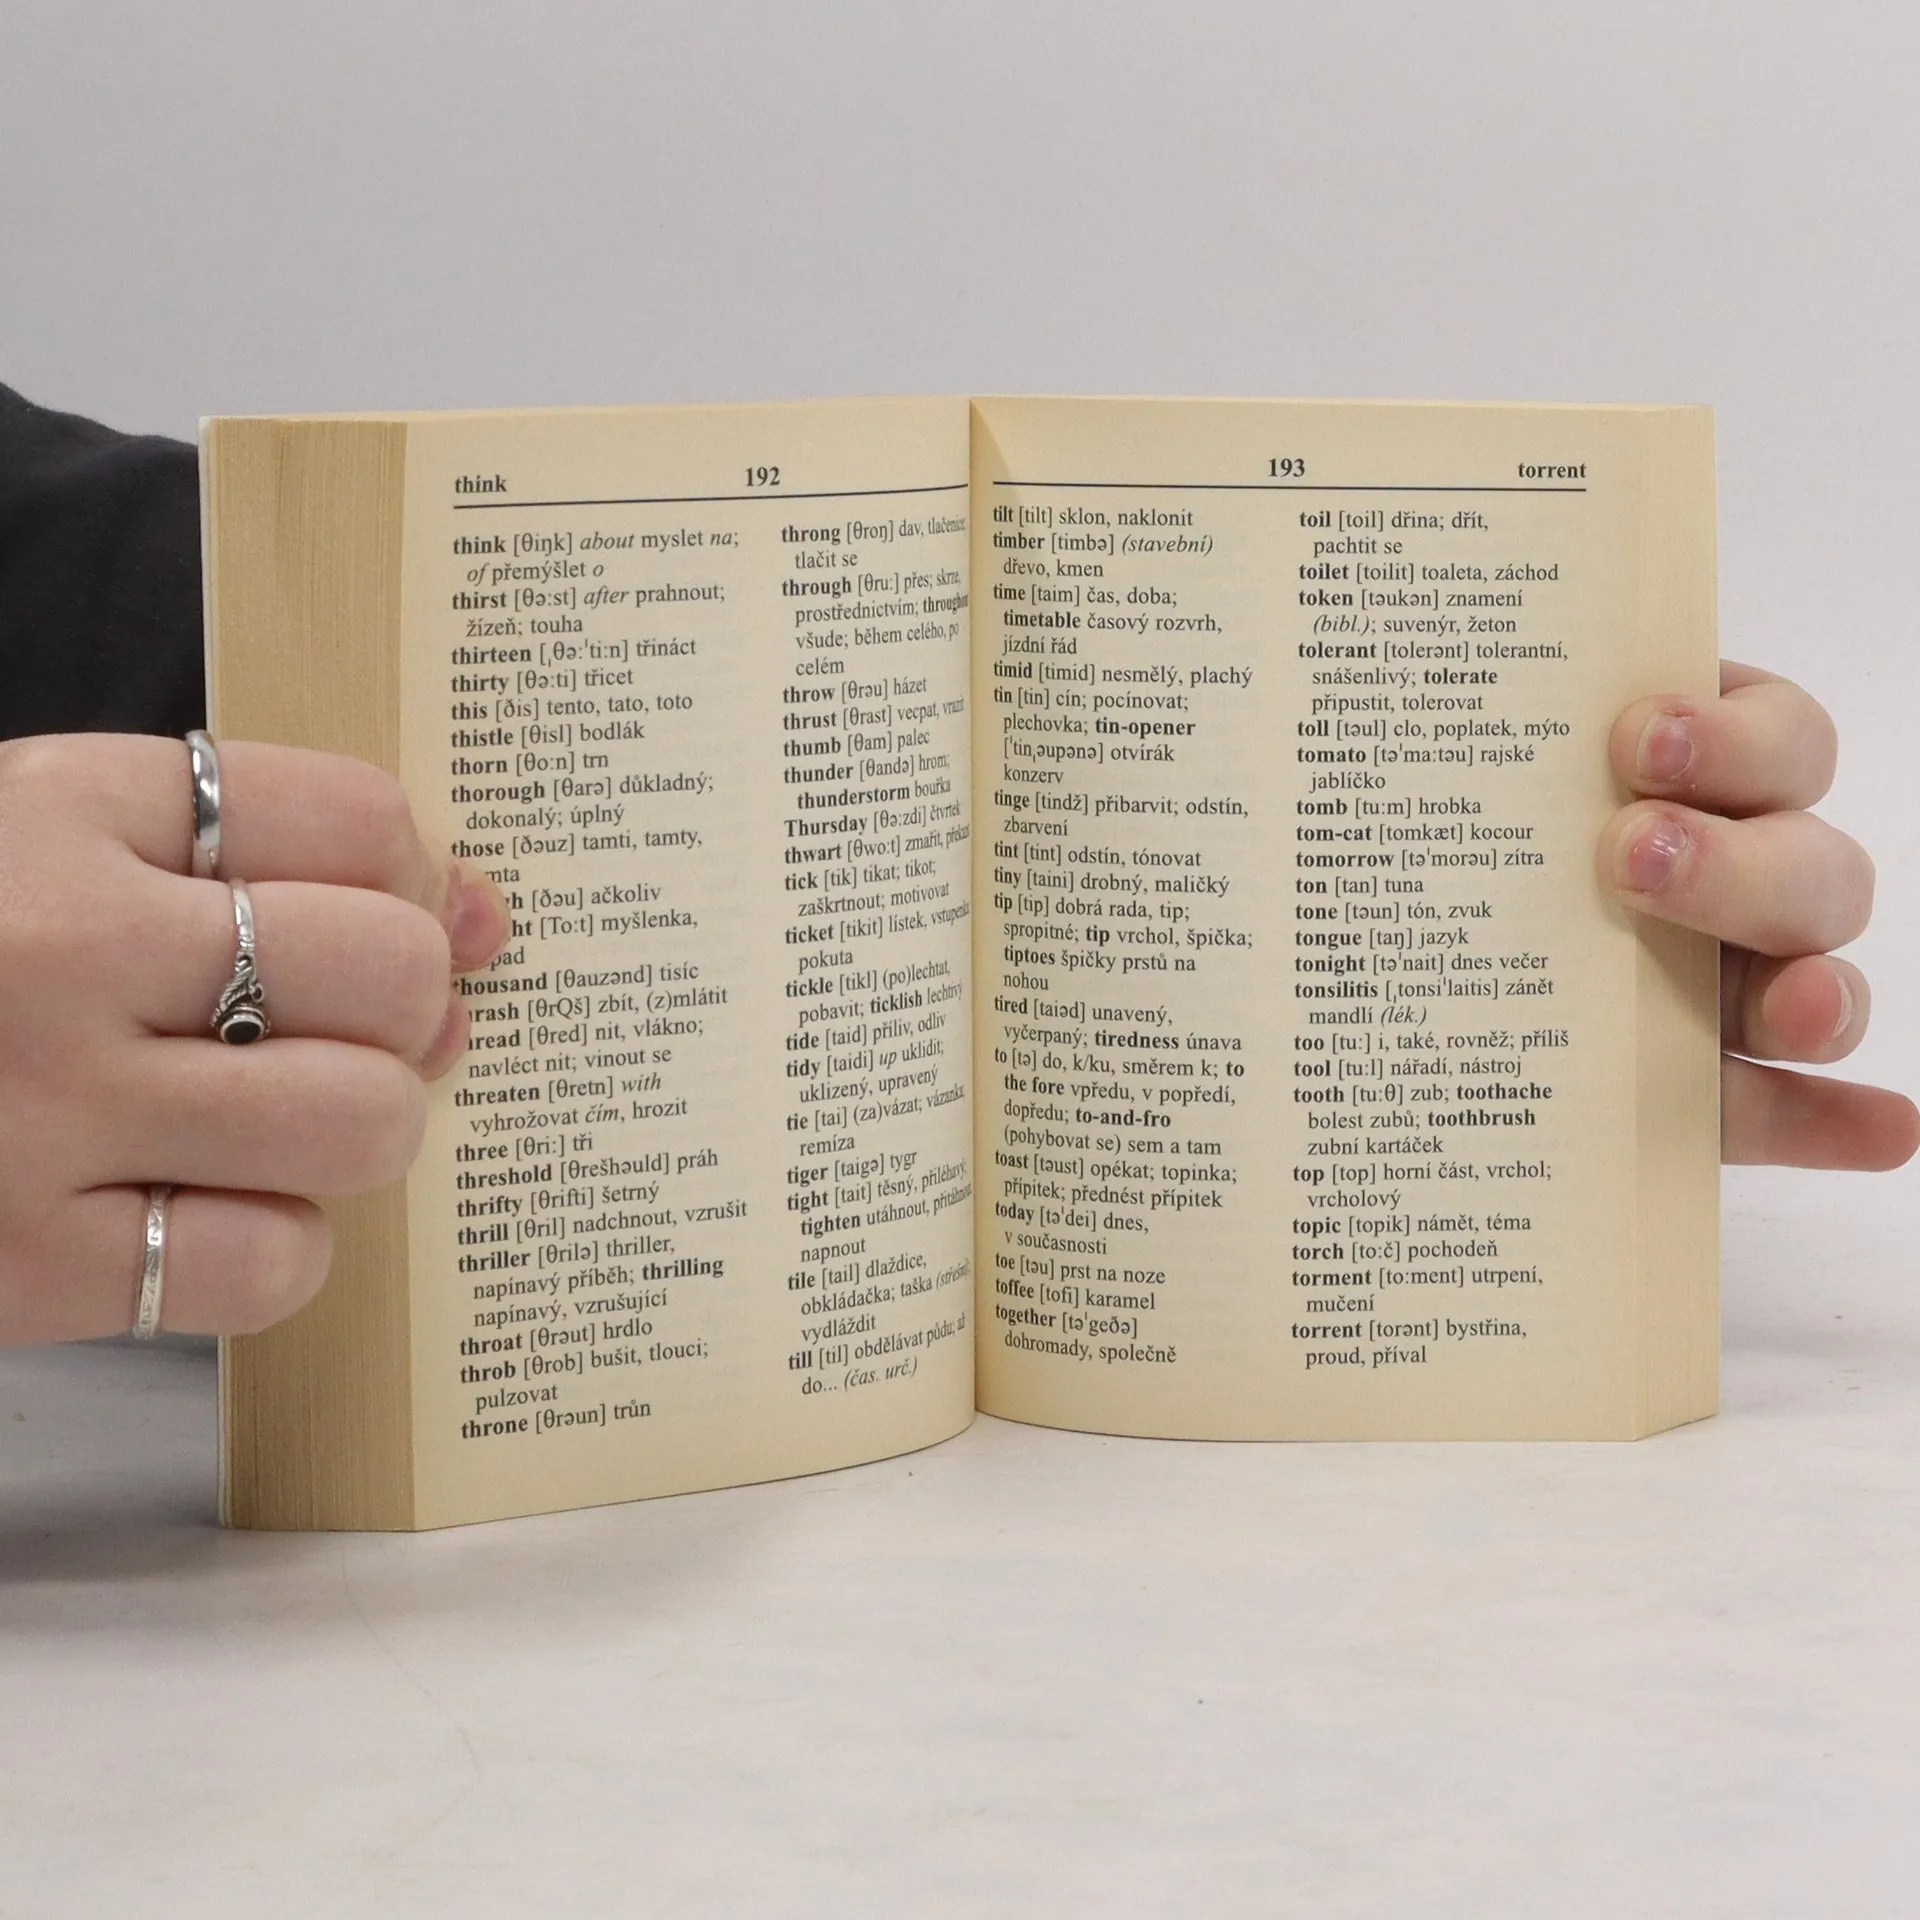 think 192
think [θiŋk] about myslet na;
of přemýšlet o
thirst [θə:st] after prahnout;
žízeň; touha
thirteen [ˌθə:ˈti:n] třináct
thirty [θə:ti] třicet
this [ðis] tento, tato, toto
thistle [θisl] bodlák
thorn [θo:n] trn
thorough [θarə] důkladný;
dokonalý; úplný
those [ðəuz] tamti, tamty,
[ðəu] ačkoliv
[To:t] myšlenka,
thousand [θauzənd] tisíc
[θrQš] zbít, (z)mlátit
[θred] nit, vlákno;
navléct nit; vinout se
threaten [θretn] with
vyhrožovat čím, hrozit
three [θri:] tři
threshold [θrešhəuld] práh
thrifty [θrifti] šetrný
thrill [θril] nadchnout, vzrušit
thriller [θrilə] thriller,
napínavý příběh; thrilling
napínavý, vzrušující
throat [θrəut] hrdlo
throb [θrob] bušit, tlouci;
pulzovat
throne [θrəun] trůn
throng [θroŋ] dav, tlačenice;
tlačit se
through [θru:] přes; skrze,
prostřednictvím; throughout
všude; během celého, po
celém
throw [θrəu] házet
thrust [θrast] vecpat, vrazit
thumb [θam] palec
thunder [θandə] hrom;
thunderstorm bouřka
Thursday [θə:zdi] čtvrtek
thwart [θwo:t] zmařit,
tick [tik] tikat; tikot;
zaškrtnout; motivovat
ticket [tikit] lístek, vstupenka
pokuta
tickle [tikl] (po)lechtat,
pobavit; ticklish lechtivý
tide [taid] příliv, odliv
tidy [taidi] up uklidit;
uklizený, upravený
tie [tai] (za)vázat; vázanka;
remíza
tiger [taigə] tygr
tight [tait] těsný, přiléhavý;
tighten utáhnout, přitáhnout
napnout
tile [tail] dlaždice,
obkládačka; taška (střešní);
vydláždit
till [til] obdělávat půdu; až
do... (čas. urč.)
193 torrent
tilt [tilt] sklon, naklonit
timber [timbə] (stavební)
dřevo, kmen
time [taim] čas, doba;
timetable časový rozvrh,
jízdní řád
timid [timid] nesmělý, plachý
tin [tin] cín; pocínovat;
plechovka; tin-opener
[ˈtinˌəupənə] otvírák
konzerv
tinge [tindž] přibarvit; odstín,
zbarvení
tint [tint] odstín, tónovat
tiny [taini] drobný, maličký
tip [tip] dobrá rada, tip;
spropitné; tip vrchol, špička;
tiptoes špičky prstů na
nohou
tired [taiəd] unavený,
vyčerpaný; tiredness únava
to [tə] do, k/ku, směrem k; to
the fore vpředu, v popředí,
dopředu; to-and-fro
(pohybovat se) sem a tam
toast [təust] opékat; topinka;
přípitek; přednést přípitek
today [təˈdei] dnes,
v současnosti
toe [təu] prst na noze
toffee [tofi] karamel
together [təˈgeðə]
dohromady, společně
toil [toil] dřina; dřít,
pachtit se
toilet [toilit] toaleta, záchod
token [təukən] znamení
(bibl.); suvenýr, žeton
tolerant [tolerənt] tolerantní,
snášenlivý; tolerate
připustit, tolerovat
toll [təul] clo, poplatek, mýto
tomato [təˈma:təu] rajské
jablíčko
tomb [tu:m] hrobka
tom-cat [tomkæt] kocour
tomorrow [təˈmorəu] zítra
ton [tan] tuna
tone [təun] tón, zvuk
tongue [taŋ] jazyk
tonight [təˈnait] dnes večer
tonsilitis [ˌtonsiˈlaitis] zánět
mandlí (lék.)
too [tu:] i, také, rovněž; příliš
tool [tu:l] nářadí, nástroj
tooth [tu:θ] zub; toothache
bolest zubů; toothbrush
zubní kartáček
top [top] horní část, vrchol;
vrcholový
topic [topik] námět, téma
torch [to:č] pochodeň
torment [to:ment] utrpení,
mučení
torrent [torənt] bystřina,
proud, příval